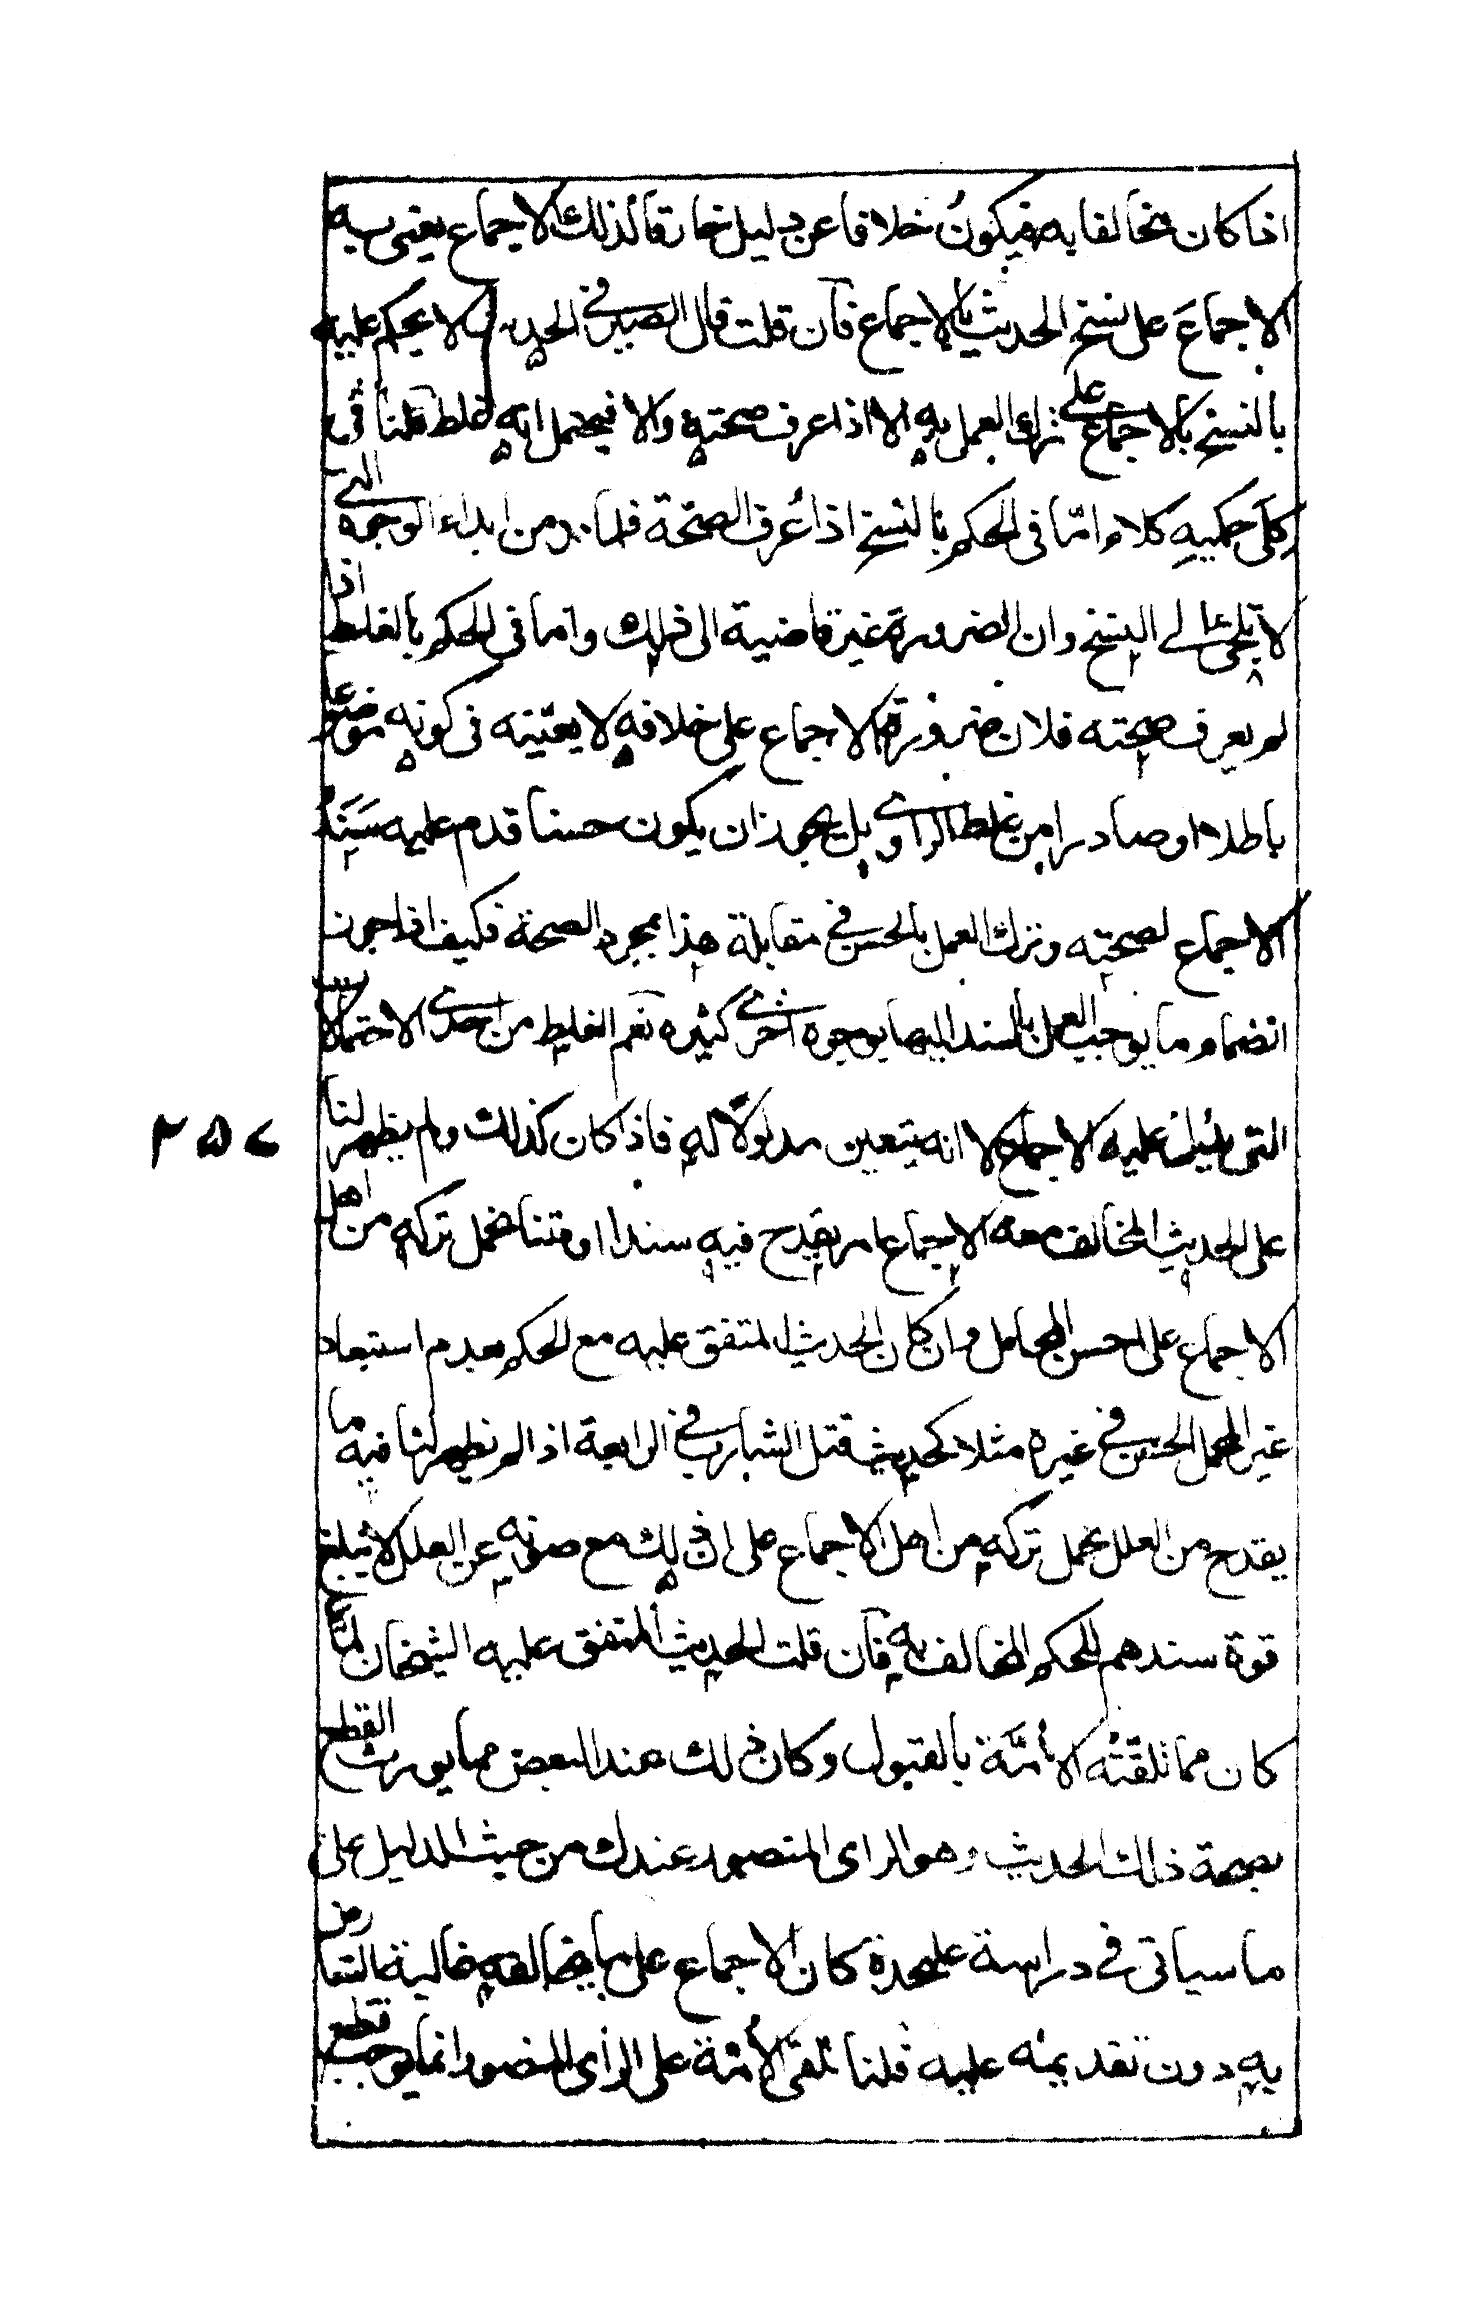 اذا كان مخالفا به فيكون خلافا عن دليل خارقا لذلك الاجماع يعنى به
الاجماعَ على نسخ الحديث بالاجماع فان قلت قال الصيرفي الحديث لا يحكم عليه
بالنسخ بالاجماع على ترك العمل به الا اذا عرف صحته والا فيحتمل انه غلط قلنا فى
كلى حكميه كلام امّا فى الحكم بالنسخ اذا عُرف الصحّة فلما من ابداء الوجه التى
لا تلجئ الى النسخ وان الضرورة غير قاضية الى ذلك واما فى الحكم بالغلط اذا
لم يعرف صحته فلان ضرورة الاجماع على خلافه لا يعيّنه فى كونه موضوعا
باطلا او صادرا من غلط الراوى بل يجوز ان يكون حسنا قدم عليه سَنَدُ
الاجماع لصحته وترك العمل بالحسن في مقابلة هذا بمجرد الصحة فكيف اذا جوز
انضمام ما يوجب العمل بالسند اليها بوجوه اخرى كثيره نعم الغلط من احدى الاحتمالات
التى عليه الاجماع لا انه يتعين مدلولًا له فاذا كان كذلك ولم يظهر لنا
على الحديث المخالف معه الاجماع امر يقدح فيه سندا او متنا نحمل تركه من اهل
الاجماع على احسن المحامل وان كان الحديث المتفق عليه مع الحكم بعدم استبعاد
غير المحمل الحسن في غيره مثلا كحديث قتل الشارب في الرابعة اذا لم يظهر لنا فيه ما
يقدح من العلل يحمل تركه من اهل الاجماع على ان ذلك مع صونه عن العلل لا يبلغ
قوة سندهم للحكم المخالف به فان قلت الحديث المتفق عليه الشيخان لما
كان مما تلقّته الأئمّة بالقبول وكان ذلك عند البعض مما يورث القطع
بصحة ذلك الحديث وهو الراى المنصور عندك من حيث الدليل على
ما سياتى فى دراسة عليحدة كان الاجماع على ما يخالفه خالية بالتعارض
به دون تقديمه عليه قلنا تلقى الأئمة على الرأى المنصور انما يوجب قطع
٢٥٧